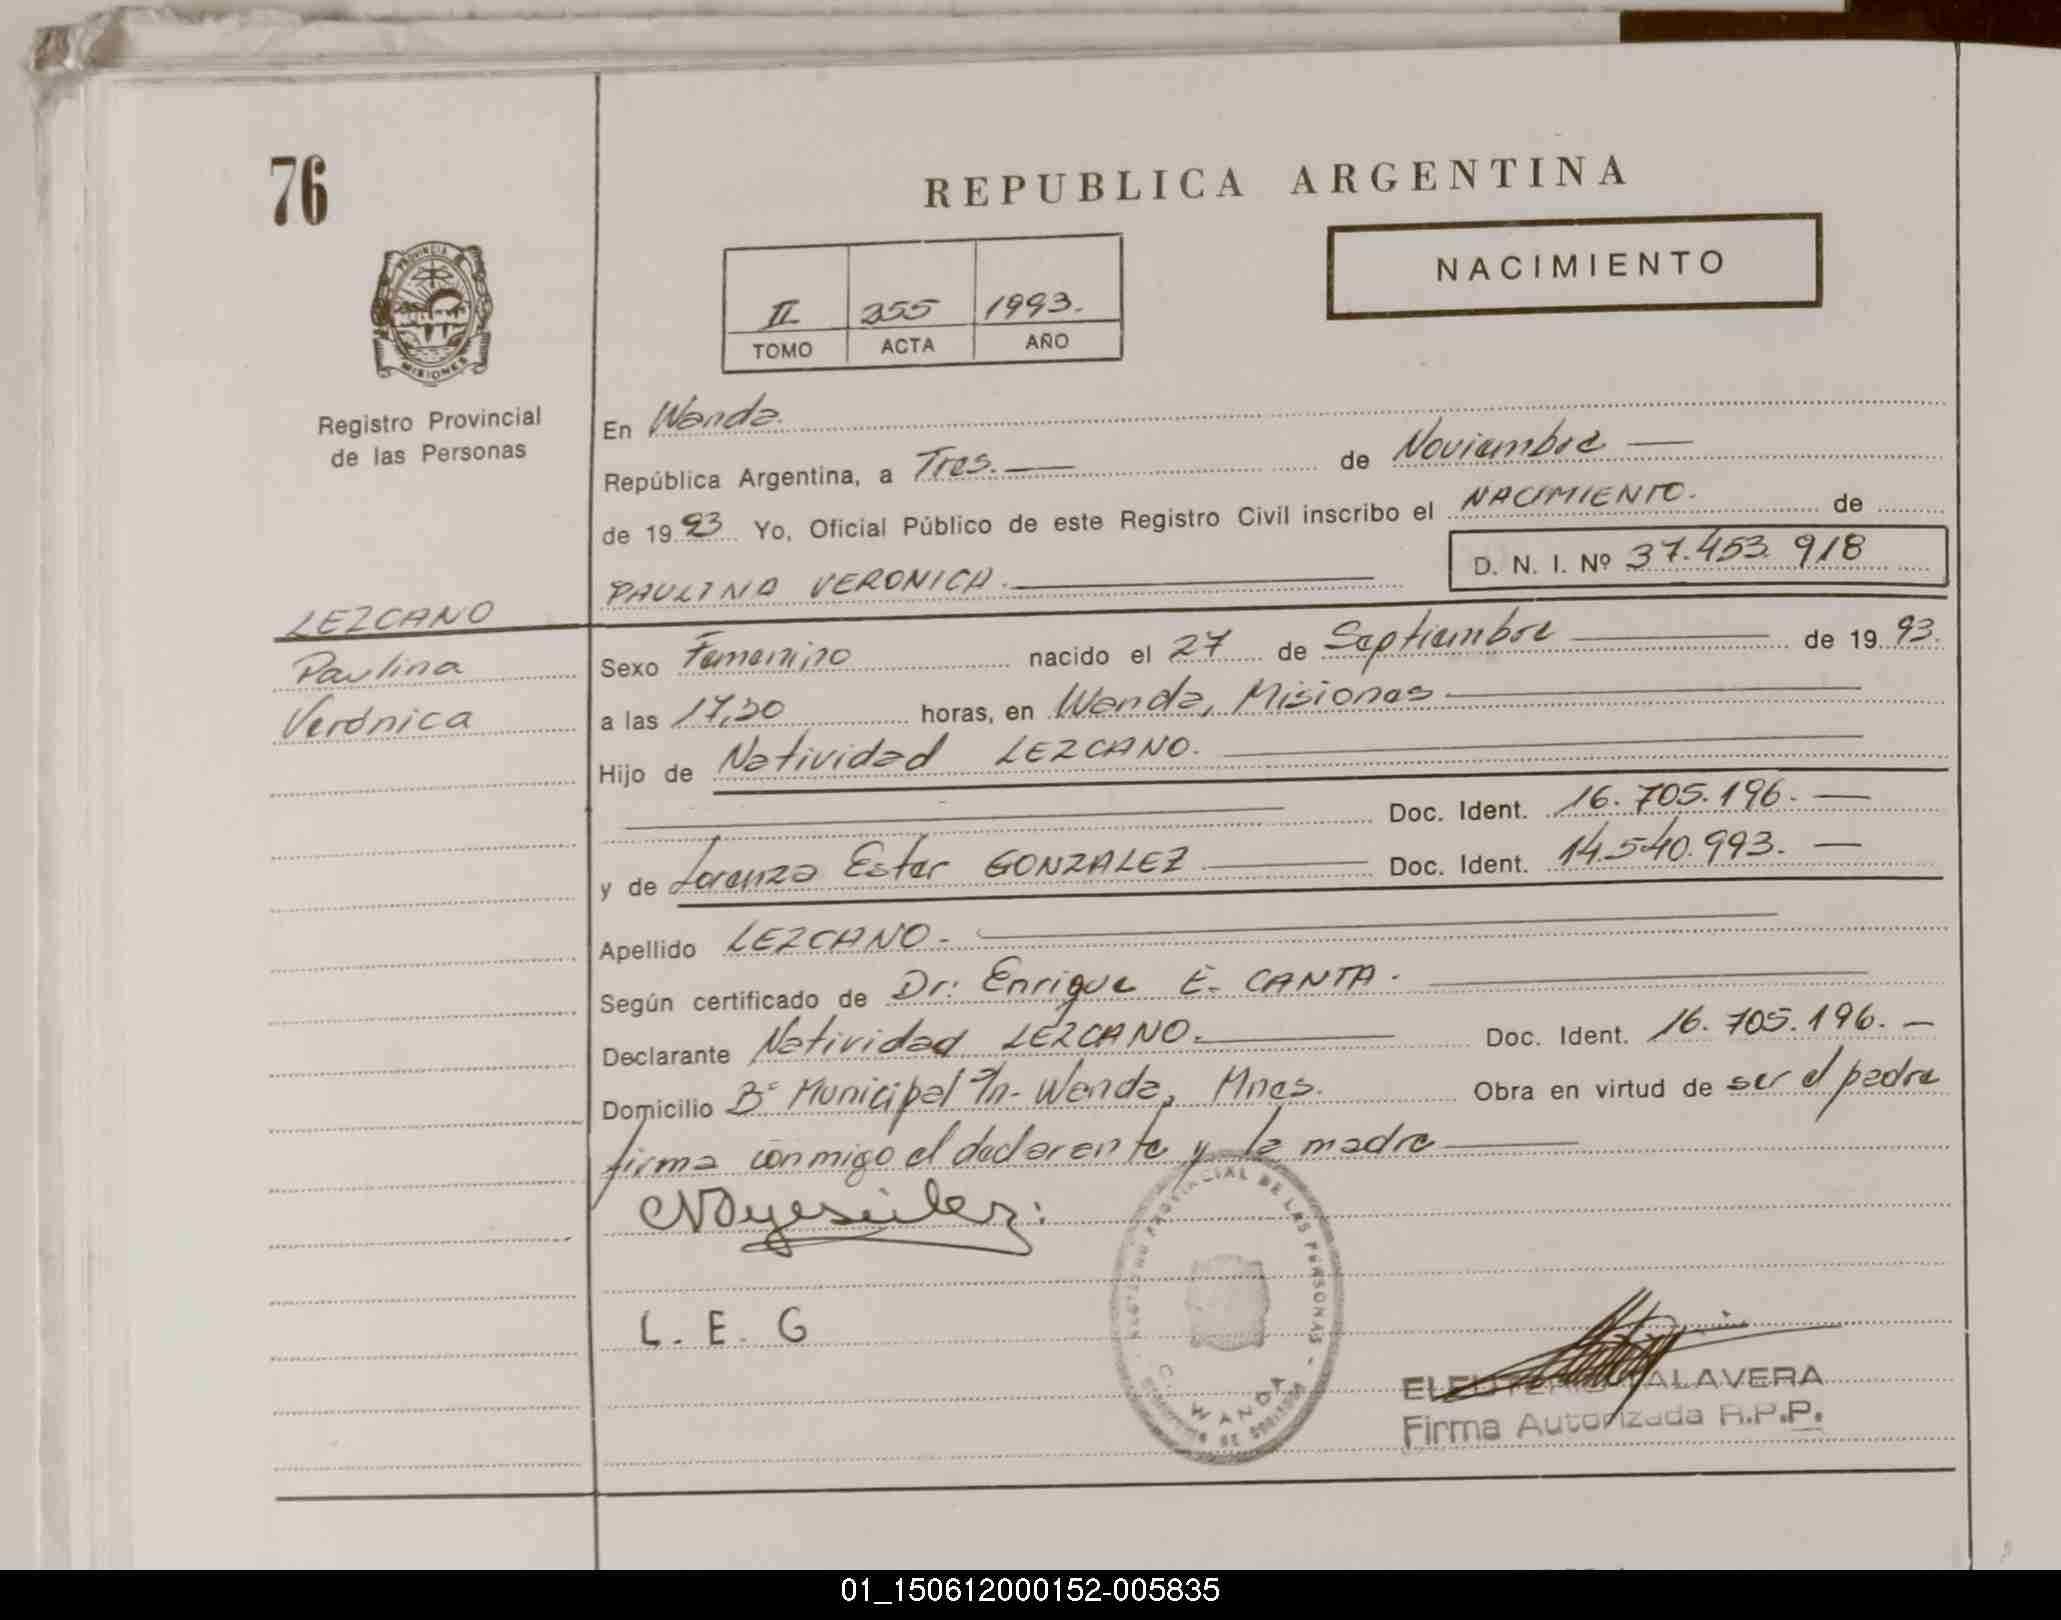 76
REPUBLICA ARGENTINA
NACIMIENTO
II 355 1993.
TOMO ACTA AÑO
PROVINCIA
MISIONES
Registro Provincial
de las Personas
En Wanda.
República Argentina, a Tres. de Noviembre
de 1993 Yo, Oficial Público de este Registro Civil inscribo el NACIMIENTO. de
D. N. I. Nº 37.453.918
PAULINA VERONICA.
LEZCANO
Paulina
Verónica
Sexo Femenino nacido el 27 de Septiembre de 1993.
a las 17,20 horas, en Wanda, Misiones
Hijo de Natividad LEZCANO.
Doc. Ident. 16.705.196.
y de Lorenza Ester GONZALEZ Doc. Ident. 14.540.993.
Apellido LEZCANO.
Según certificado de Dr: Enrique E. CANTA.
Declarante Natividad LEZCANO. Doc. Ident. 16.705.196.
Domicilio Bº Municipal s/n- Wanda, Mnes. Obra en virtud de ser el padre
firma conmigo el declarente y la madre
L. E. G
REGISTRO PROVINCIAL DE LAS PERSONAS
WANDA
ELEUTERIO TALAVERA
Firma Autorizada R.P.P.
01_150612000152-005835